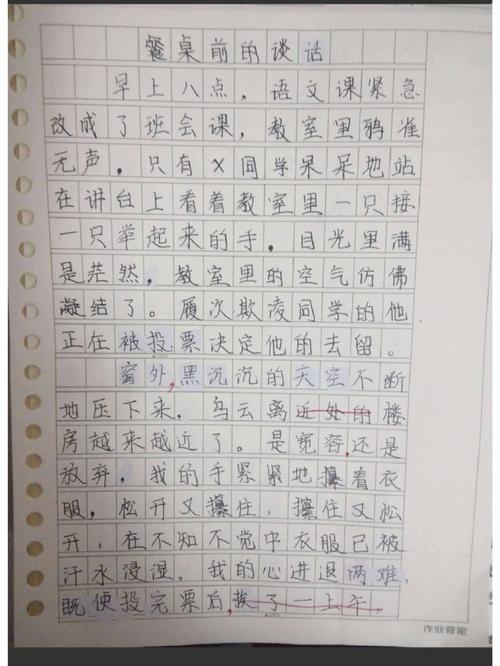 餐桌前的谈话
早上八点，语文课紧急
改成了班会课，教室里鸦雀
无声，只有X同学呆呆地站
在讲台上看着教室里一只接
一只举起来的手，目光里满
是茫然，教室里的空气仿佛
凝结了。屡次欺凌同学的他
正在被投票决定他的去留。
窗外，黑沉沉的天空不断
地压下来，乌云离近处的楼
房越来越近了。是宽容，还是
放弃，我的手紧紧地攥着衣
服，松开又攥住，攥住又松
开，在不知不觉中衣服已被
汗水浸湿，我的心进退两难，
既便投完票后，挨了一上午，
作业管家